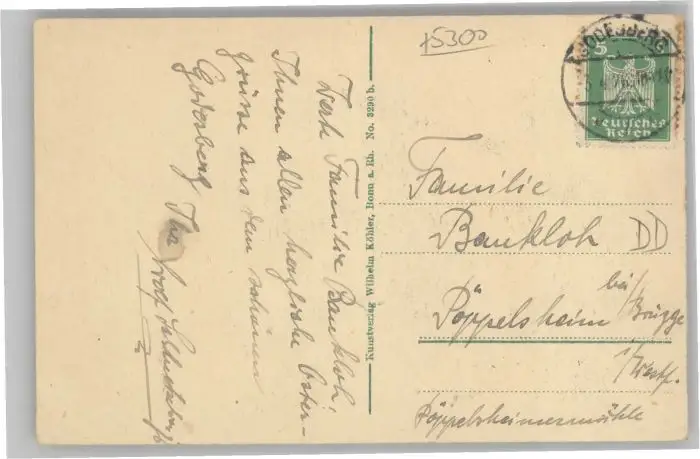 15300
GODESBERG
5
Deutsches
Reich
Familie
Bankloh DD
Pöppelsheim bei/Brügge
i/Westf.
Pöppelsheimermühle
Kunstverlag Wilhelm Köhler, Bonn a. Rh. No. 3290 b.
Werte Familie Bankloh!
Ihnen allen herzliche Oster-
grüsse aus dem schönen
Godesberg Ihr